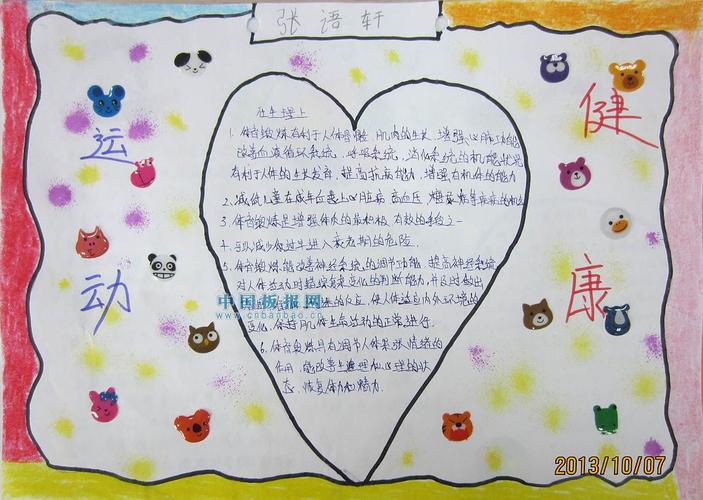 张语轩
运动
健康
在生理上
1. 体育锻炼有利于人体骨骼 肌肉的生长,增强心肺功能
改善血液循环系统,呼吸系统,消化系统的机能状况
有利于人体的生长发育,提高抗病能力,增强有机体的能力
2. 减低儿童在成年后患上心脏病 高血压 糖尿病等疾病的机会
3. 体育锻炼是增强体质的最积极,有效的手段之一
4. 可以减少你过早进入衰老期的危险
5. 体育锻炼能改善神经系统的调节功能,提高神经系统
对人体活动时错综复杂变化的判断能力,并及时做出
的反应,使人体适应内外环境的
变化,保持肌体生命活动的正常进行.
6. 体育锻炼具有调节人体紧张情绪的
作用,能改善生理和心理的状
态,恢复体力和精力.
中国板报网
www.cnbanbao.cn
2013/10/07